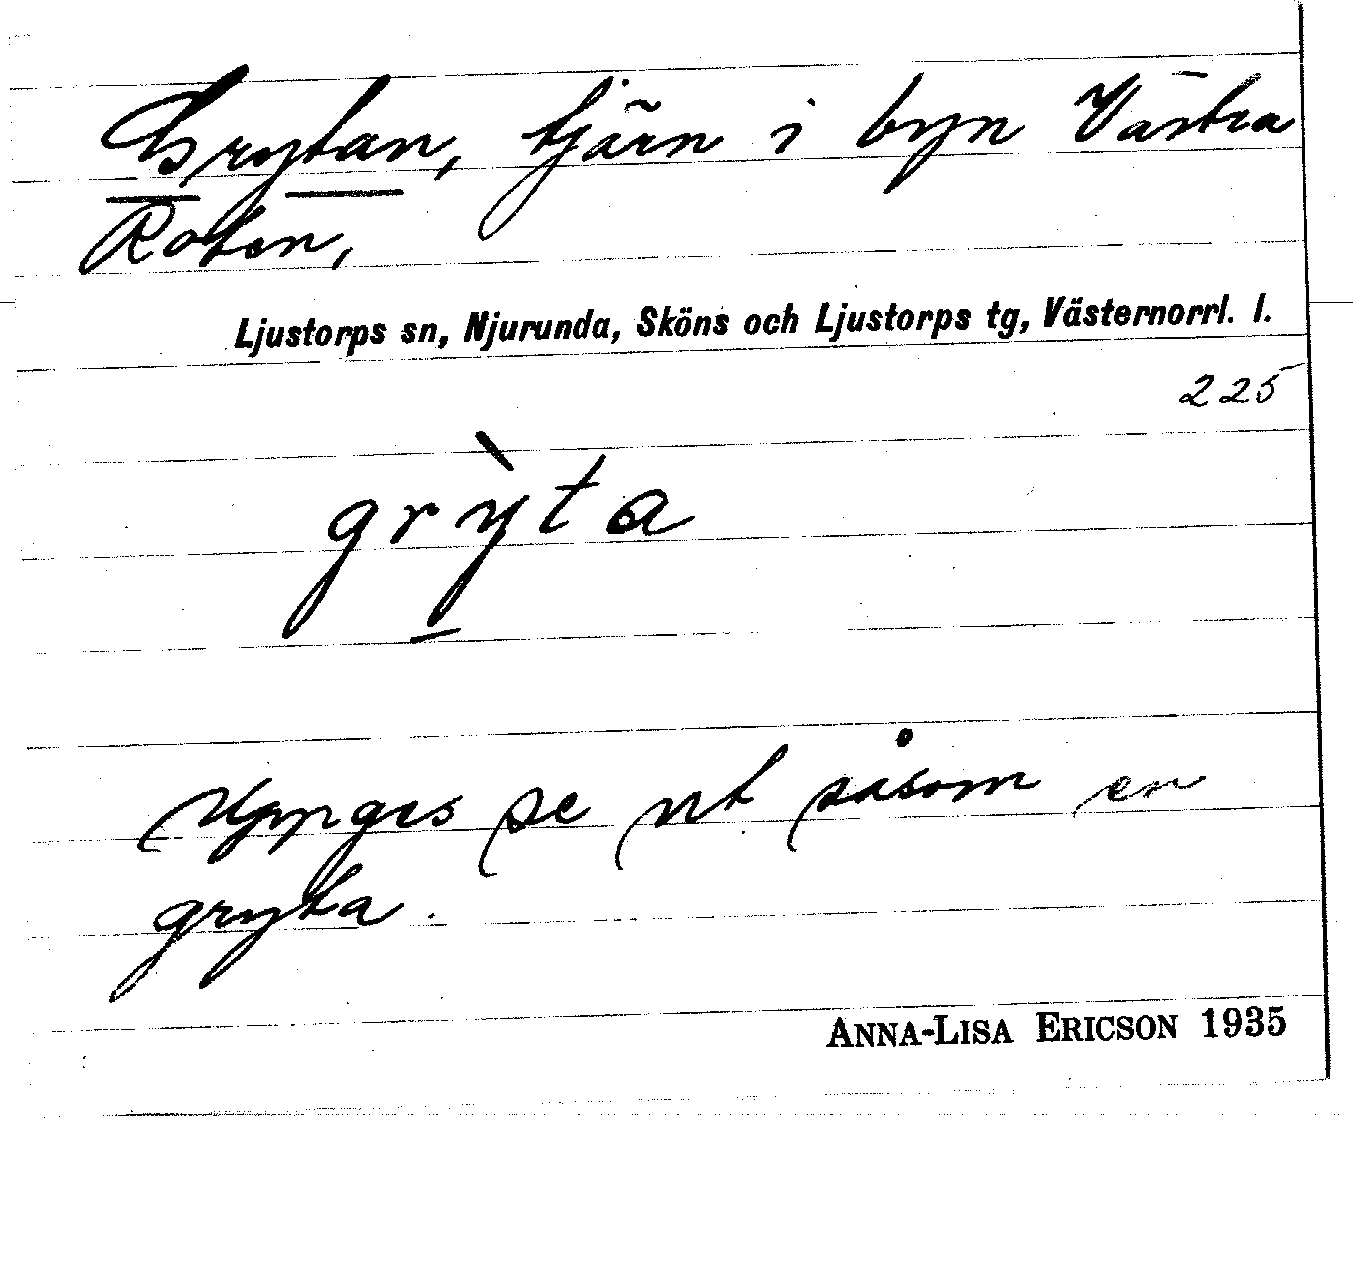 Grytan, tjärn i byn Västra
Roten,
Ljustorps sn, Njurunda, Sköns och Ljustorps tg, Västernorrl. l.
225
grỳta
Uppges se ut såsom en
gryta.
ANNA-LISA ERICSON 1935